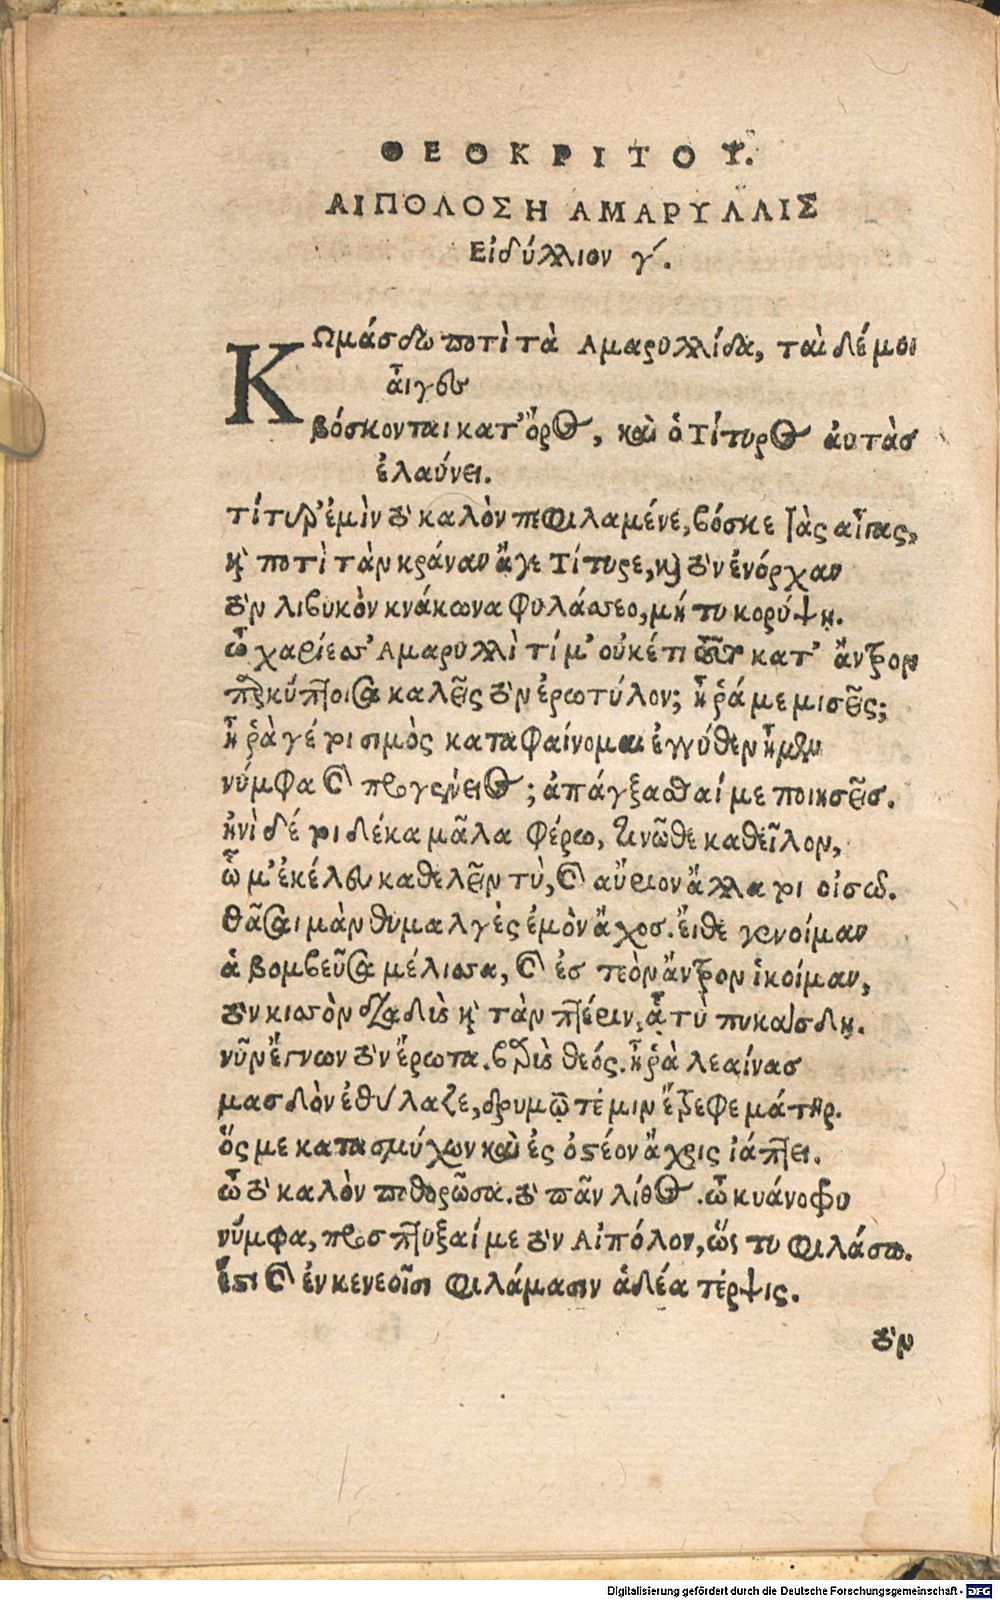 ΘΕΟΚΡΙΤΟΥ.
ΑΙΠΟΛΟΣ Η ΑΜΑΡΥΛΛΙΣ
Εἰδύλλιον γ´.
ΚΩμάσδω ποτὶ τὰ Αμαρυλλίδα, ταὶ δέ μοι
αἶγες
βόσκονται κατ' ὄρος, καὶ ὁ Τίτυρος αὐτὰς
ἐλαύνει.
τίτυρ' ἐμὶν τὸ καλὸν πεφιλαμένε, βόσκε τὰς αἶγας,
καὶ ποτὶ τὰν κράναν ἄγε Τίτυρε, καὶ τὸν ἐνόρχαν
τὸν λιβυκὸν κνάκωνα φυλάσσεο, μή τυ κορύψῃ.
ὦ χαρίεσσ' Αμαρυλλὶ τί μ' οὐκέτι τοῦτο κατ' ἄντρον
παρκύπτοισα καλεῖς τὸν ἐρωτύλον; ἦ ῥά με μισεῖς;
ἦ ῥά γέ τοι σιμὸς καταφαίνομαι ἐγγύθεν ἦμεν
νύμφα καὶ προγένειος; ἀπάγξασθαί με ποιησεῖς.
ἠνὶ δέ τοι δέκα μᾶλα φέρω, τηνῶθε καθεῖλον,
ὧ μ' ἐκέλευ καθελεῖν τὺ, καὶ αὔριον ἄλλα τοι οἰσῶ.
θᾶσαι μὰν θυμαλγὲς ἐμὸν ἄχος. εἴθε γενοίμαν
ἁ βομβεῦσα μέλισσα, καὶ ἐς τεὸν ἄντρον ἱκοίμαν,
τὸν κισσὸν διαδὺς καὶ τὰν πτέριν, ᾇ τὺ πυκάσδῃ.
νῦν ἔγνων τὸν ἔρωτα. βαρὺς θεός. ἦ ῥὰ λεαίνας
μασδὸν ἐθύλαζε, δρυμῷ τέ μιν ἔτρεφε μάτηρ.
ὅς με κατασμύχων καὶ ἐς ὀστέον ἄχρις ἰάπτει.
ὦ τὸ καλὸν ποθορῶσα. τὸ πᾶν λίθος. ὦ κυάνοφρυ
νύμφα, πρόσπτυξαί με τὸν Αἰπόλον, ὥς τυ φιλάσω.
ἔστι καὶ ἐν κενεοῖσι φιλάμασιν ἁδέα τέρψις.
τὸν
Digitalisierung gefördert durch die Deutsche Forschungsgemeinschaft - DFG